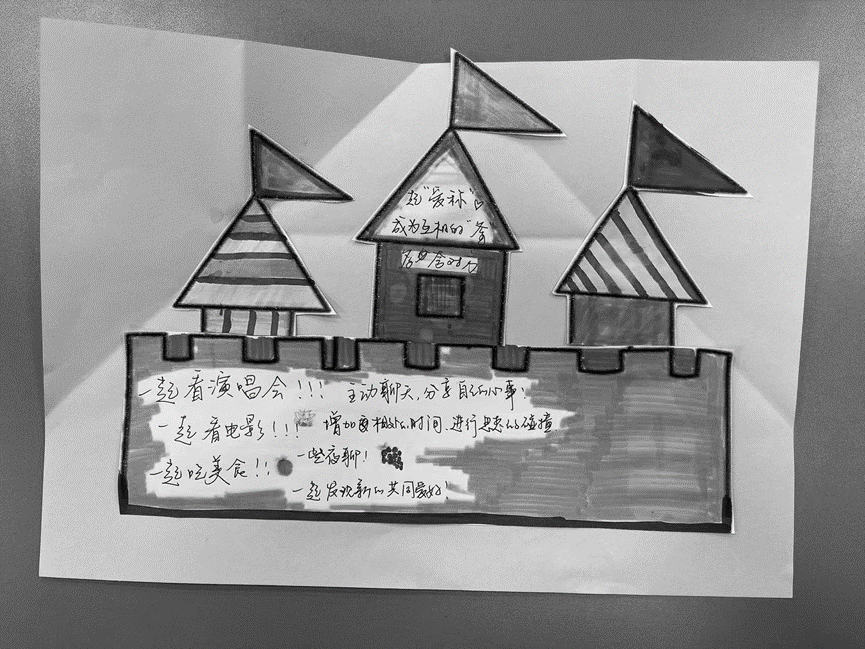 起“爱称”
成为互相的“爸
一起看演唱会!!!
主动聊天,分享自己的心事!
一起看电影!!!
增加相处的时间、进行思想的碰撞
一些夜聊!
一起吃美食!!
一起发现新的共同爱好!